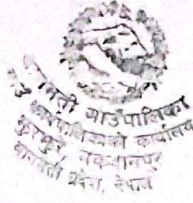 गाउँपालिका
कार्यपालिकाको कार्यालय
मकवानपुर
बागमती प्रदेश, नेपाल